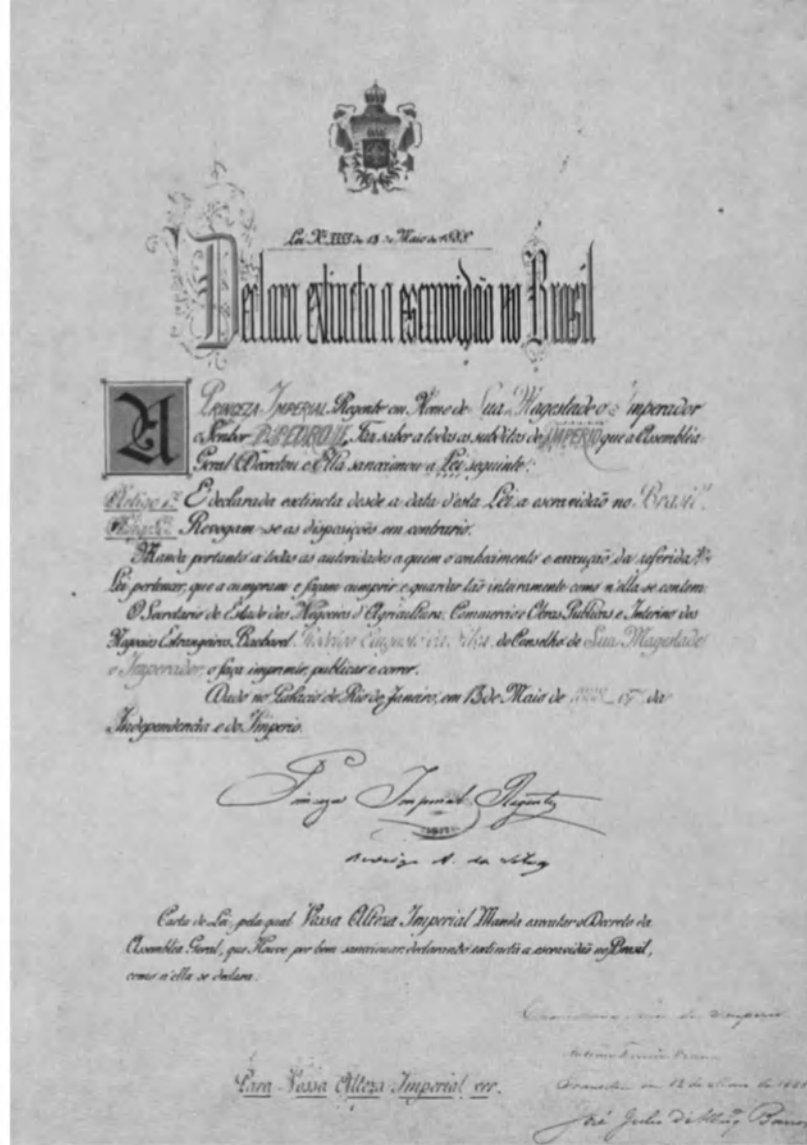 Lei Nº 3353 de 13 de Maio de 1888
Declara extincta a escravidão no Brasil
A PRINCEZA IMPERIAL Regente em Nome de Sua Magestade o Imperador
o Senhor D. PEDRO II, Faz saber a todos os subditos do IMPERIO que a Assembléa
Geral Decretou e Ella sanccionou a Lei seguinte:
Artigo 1º É declarada extincta desde a data d'esta Lei a escravidão no Brasil.
Revogam-se as disposições em contrario.
Manda portanto a todas as autoridades a quem o conhecimento e execução da referida
Lei pertencer, que a cumpram e façam cumprir e guardar tão inteiramente como n'ella se contem.
O Secretario de Estado dos Negocios d'Agricultura, Commercio e Obras Publicas e Interino dos
Negocios Estrangeiros, Bacharel Rodrigo Augusto da Silva, do Conselho de Sua Magestade
o Imperador, o faça imprimir, publicar e correr.
Dado no Palacio do Rio de Janeiro, em 13 de Maio de 1888 67º da
Independencia e do Imperio.
Princeza Imperial Regente
Rodrigo A. da Silva
Carta de Lei, pela qual Vossa Alteza Imperial Manda executar o Decreto da
Assembléa Geral, que Houve por bem sanccionar, declarando extincta a escravidão no Brasil,
como n'ella se declara.
Para Vossa Alteza Imperial ver.
Imperio
13 de Maio de 1888
José Julio de